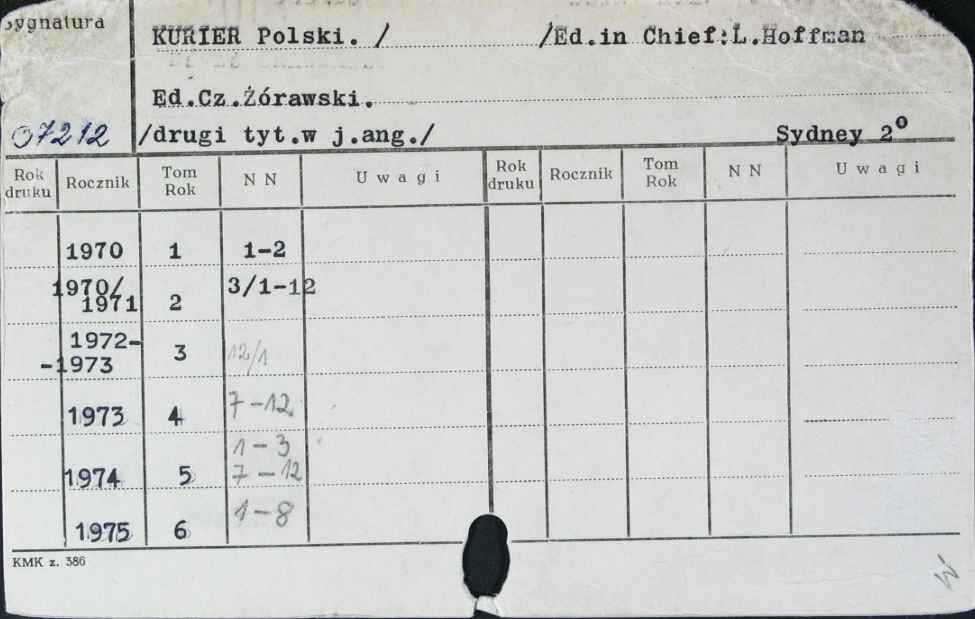 Sygnatura
KURIER Polski. / /Ed.in Chief:L.Hoffman
Ed.Cz.Żórawski.
07212 /drugi tyt.w j.ang./ Sydney 2º
Rok druku Rocznik Tom Rok NN Uwagi Rok druku Rocznik Tom Rok NN Uwagi
1970 1 1-2
1970/ 1971 2 3/1-12
1972- -1973 3 12/1
1973 4 7-12
1974 5 1-3 7-12
1975 6 1-8
KMK z. 386
W